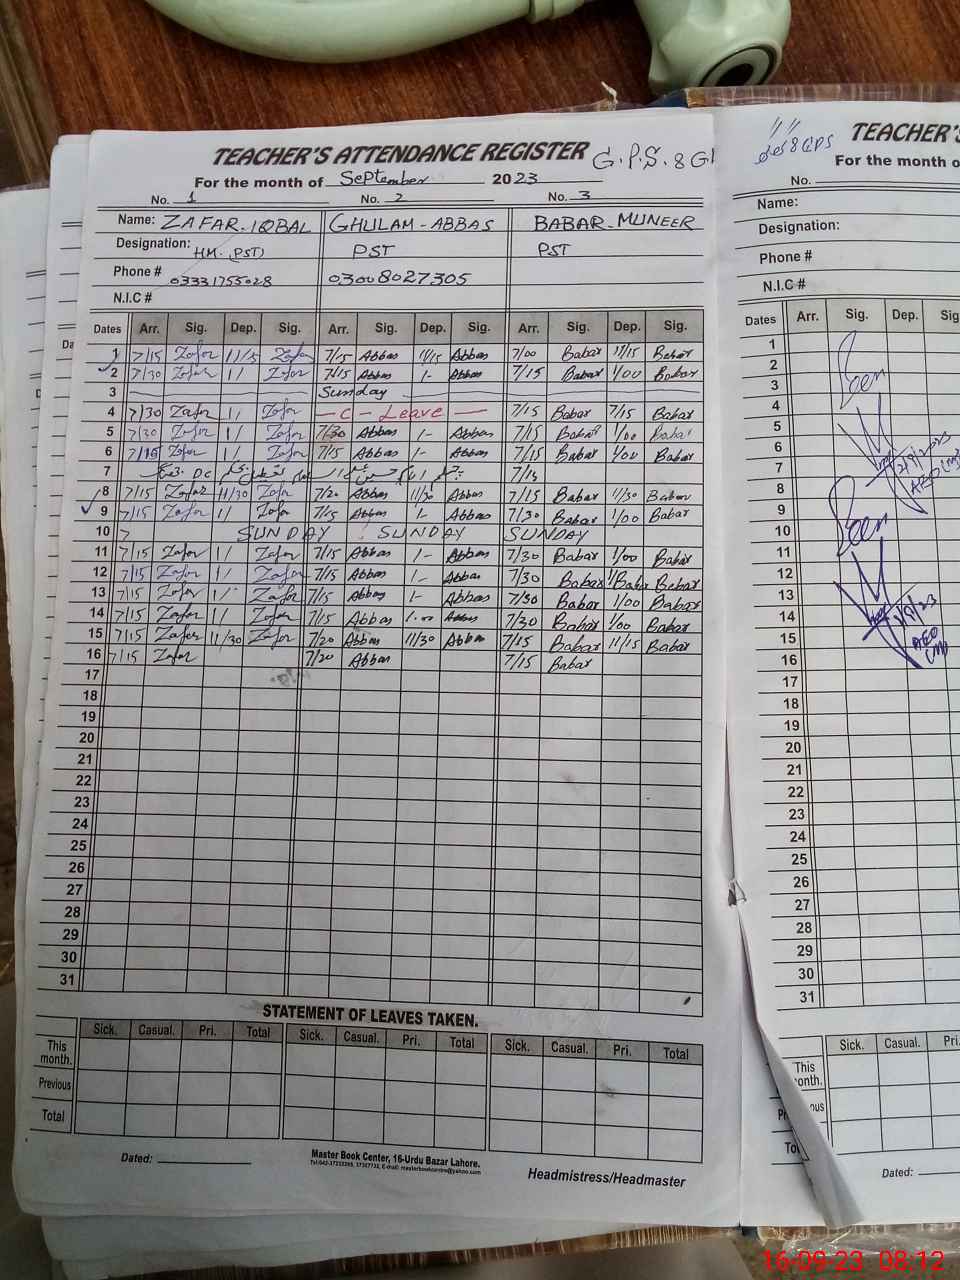 TEACHER'S ATTENDANCE REGISTER G.P.S. 8 G1
For the month of September 2023
No. 1 No. 2 No. 3
Name: ZAFAR-IQBAL GHULAM-ABBAS BABAR-MUNEER
Designation: HM.(PST) PST PST
Phone # 03331755028 03008027305
N.I.C #
Dates Arr. Sig. Dep. Sig. Arr. Sig. Dep. Sig. Arr. Sig. Dep. Sig.
1 7/15 Zafar 11/15 Zafar 7/15 Abbas 11/15 Abbas 7/00 Babar 11/15 Babar
2 7/30 Zafar 1/ Zafar 7/15 Abbas 1- Abbas 7/15 Babar 1/00 Babar
3 Sunday
4 7/30 Zafar 1/ Zafar - C - Leave - 7/15 Babar 7/15 Babar
5 7/30 Zafar 1/ Zafar 7/30 Abbas 1- Abbas 7/15 Babar 1/00 Babar
6 7/15 Zafar 1/ Zafar 7/15 Abbas 1- Abbas 7/15 Babar 1/00 Babar
7 DC 7/15
8 7/15 Zafar 11/30 Zafar 7/20 Abbas 11/30 Abbas 7/15 Babar 11/30 Babar
9 7/15 Zafar 1/ Zafar 7/15 Abbas 1- Abbas 7/30 Babar 1/00 Babar
10 SUNDAY SUNDAY SUNDAY
11 7/15 Zafar 1/ Zafar 7/15 Abbas 1- Abbas 7/30 Babar 1/00 Babar
12 7/15 Zafar 1/ Zafar 7/15 Abbas 1- Abbas 7/30 Babar Babar Babar
13 7/15 Zafar 1/ Zafar 7/15 Abbas 1- Abbas 7/30 Babar 1/00 Babar
14 7/15 Zafar 1/ Zafar 7/15 Abbas 1.00 Abbas 7/30 Babar 1/00 Babar
15 7/15 Zafar 11/30 Zafar 7/20 Abbas 11/30 Abbas 7/15 Babar 11/15 Babar
16 7/15 Zafar 7/20 Abbas 7/15 Babar
17
18
19
20
21
22
23
24
25
26
27
28
29
30
31
STATEMENT OF LEAVES TAKEN.
Sick. Casual. Pri. Total Sick. Casual. Pri. Total Sick. Casual. Pri. Total
This month.
Previous
Total
Dated:
Master Book Center, 16-Urdu Bazar Lahore.
Headmistress/Headmaster
TEACHER'S
For the month o
No.
Name:
Designation:
Phone #
N.I.C #
Dates Arr. Sig. Dep. Sig
1
2
3 Seen
4
5
6
7
8
9
10 Seen
11
12
13
14
15
16
17
18
19
20
21
22
23
24
25
26
27
28
29
30
31
Sick. Casual. Pri.
This
onth.
ous
Dated:
16-09-23 08:12